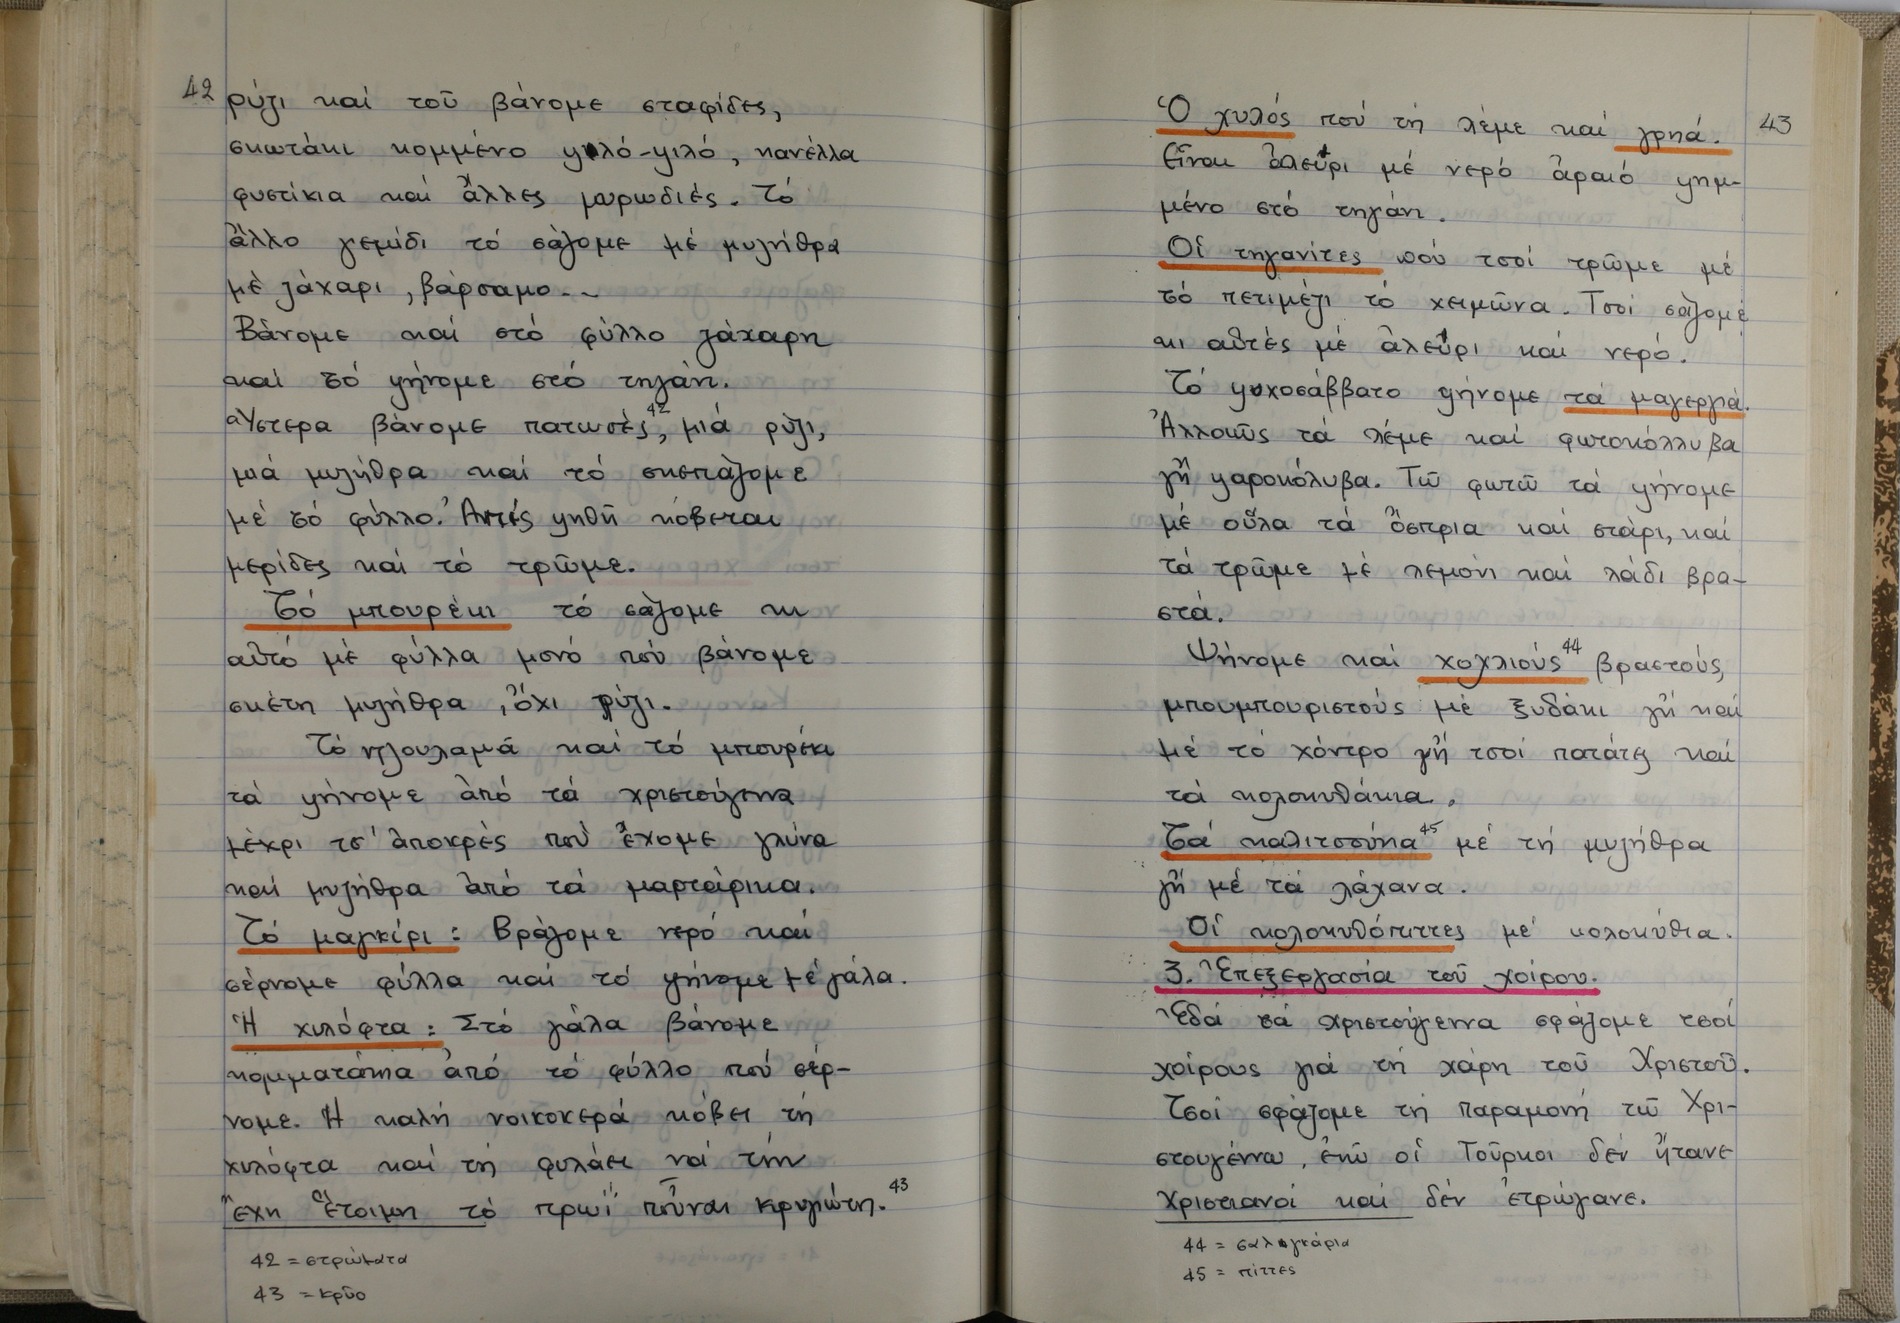 42
ρύζι καί τοῦ βάνομε σταφίδες,
σκωτάκι κομμένο ψιλό-ψιλό, κανέλλα
φυστίκια καί ἄλλες μυρωδιές. Τό
ἄλλο γεμίδι τό σάζομε μέ μυζήθρα
μέ ζάχαρι, βάρσαμο...
Βάνομε καί στό φύλλο ζάχαρη
καί τό ψήνομε στό τηγάνι.
Ὕστερα βάνομε πατωσές⁴², μιά ρύζι,
μιά μυζήθρα καί τό σκεπάζομε
μέ τό φύλλο. Ἀπής ψηθῆ κόβεται
μερίδες καί τό τρῶμε.
Τό μπουρέκι τό σάζομε κι
αὐτό μέ φύλλα μονό πού βάνομε
σκέτη μυζήθρα, ὄχι ρύζι.
Τό τζουλαμά καί τό μπουρέκι
τά ψήνομε ἀπό τά χριστούγεννα
μέχρι τσ' ἀποκρές πού ἔχομε γλύνα
καί μυζήθρα ἀπό τά μαρτάρικα.
Τό μαγκίρι: Βράζομε νερό καί
σέρνομε φύλλα καί τό ψήνομε μέ γάλα.
Ἡ χυλόφτα: Στό γάλα βάνομε
κομματάκια ἀπό τό φύλλο πού σέρ-
νομε. Ἡ καλή νοικοκερά κόβει τή
χυλόφτα καί τή φυλάει νά τήν
ἔχη ἕτοιμη τό πρωί ποὖναι κρυγιώτη.⁴³
42 = στρώματα
43 = κρῦο
43
Ὁ χυλός πού τή λέμε καί γρηά.
Εἶναι ἀλεύρι μέ νερό ἀραιό ψημ-
μένο στό τηγάνι.
Οἱ τηγανίτες πού τσοί τρῶμε μέ
τό πετιμέζι τό χειμῶνα. Τσοί σάζομε
κι αὐτές μέ ἀλεύρι καί νερό.
Τό ψυχοσάββατο ψήνομε τά μαγεργιά.
Ἀλλοιῶς τά λέμε καί φωτοκόλλυβα
γἤ ψαροκόλυβα. Τῶ φωτῶ τά ψήνομε
μέ οὗλα τά ὄσπρια καί στάρι, καί
τά τρῶμε μέ λεμόνι καί λάδι βρα-
στά.
Ψήνομε καί χοχλιούς⁴⁴ βραστούς,
μπουμπουριστούς μέ ξυδάκι γἤ καί
μέ τό χόντρο γἤ τσοί πατάτες καί
τά κολοκυθάκια.
Τά καλιτσούνια⁴⁵ μέ τή μυζήθρα
γἤ μέ τά λάχανα.
Οἱ κολοκυθόπιττες μέ κολοκύθια.
3. Ἐπεξεργασία τοῦ χοίρου.
Ἐδά τά Χριστούγεννα σφάζομε τσοί
χοίρους γιά τή χάρη τοῦ Χριστοῦ.
Τσοί σφάζομε τή παραμονή τῶ Χρι-
στουγέννω, ἐπῶ οἱ Τοῦρκοι δέν ἤτανε
Χριστιανοί καί δέν ἐτρώγανε.
44 = σαλιγκάρια
45 = πίττες